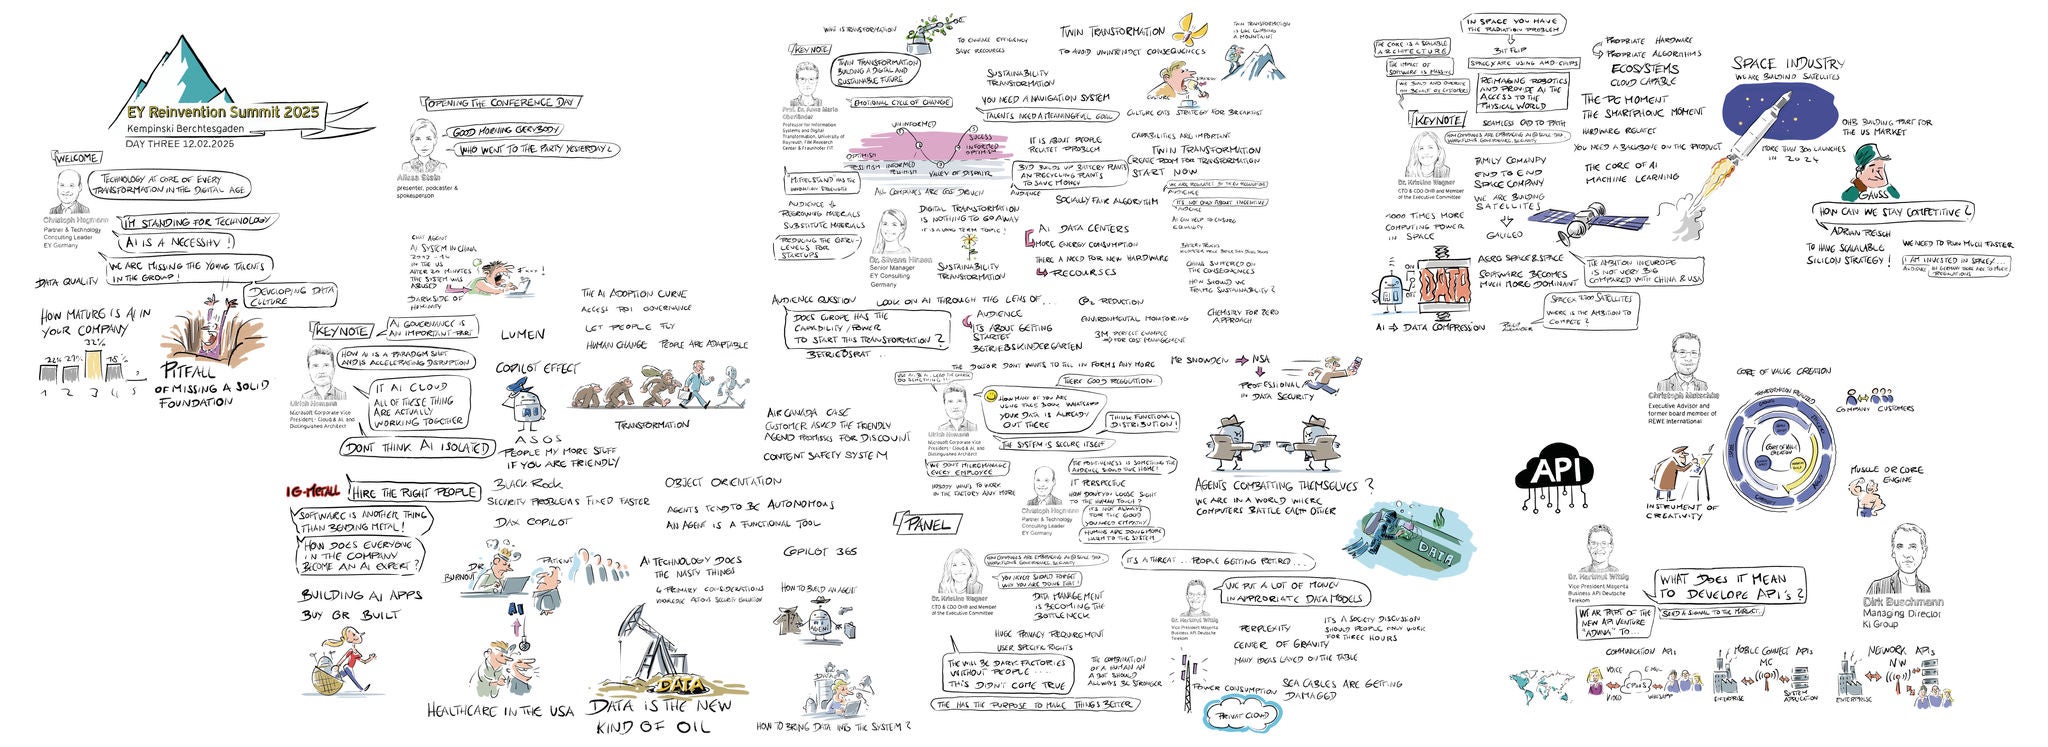 EY Reinvention Summit 2025
Kempinski Berchtesgaden
DAY THREE 12.02.2025
WELCOME
TECHNOLOGY AT CORE OF EVERY
TRANSFORMATION IN THE DIGITAL AGE
Christoph Hegmann
Partner & Technology
Consulting Leader
EY Germany
I'M STANDING FOR TECHNOLOGY
AI IS A NECESSITY!
WE ARE MISSING THE YOUNG TALENTS
IN THE GROUP!
DEVELOPING DATA
CULTURE
DATA QUALITY
HOW MATURE IS AI IN
YOUR COMPANY
32%
1 2 3 4 5
PITFALL
OF MISSING A SOLID
FOUNDATION
OPENING THE CONFERENCE DAY
GOOD MORNING EVERYBODY
WHO WENT TO THE PARTY YESTERDAY?
Alissa Stein
presenter, podcaster &
spokesperson
CHAT AGENT
AI SYSTEM IN CHINA
IN THE US
AFTER 20 MINUTES
THE SYSTEM WAS
ABUSED
DARKSIDE OF
HUMANITY
F***!
KEYNOTE
AI GOVERNANCE IS
AN IMPORTANT PART
HOW AI IS A PARADIGM SHIFT
AND IS ACCELERATING DISRUPTION
Ulrich Homann
Microsoft Corporate Vice
President - Cloud & AI, and
Distinguished Architect
IT AI CLOUD
ALL OF THESE THING
ARE ACTUALLY
WORKING TOGETHER
DONT THINK AI ISOLATED
IG-METALL
HIRE THE RIGHT PEOPLE
SOFTWARE IS ANOTHER THING
THAN BENDING METAL!
HOW DOES EVERYONE
IN THE COMPANY
BECOME AN AI EXPERT?
BUILDING AI APPS
BUY OR BUILT
LUMEN
COPILOT EFFECT
ASOS
PEOPLE MY MORE STUFF
IF YOU ARE FRIENDLY
BLACK ROCK
SECURITY PROBLEMS FIXED FASTER
DAX COPILOT
THE AI ADOPTION CURVE
ACCESS ROI GOVERNANCE
LET PEOPLE FLY
HUMAN CHANGE PEOPLE ARE ADAPTABLE
TRANSFORMATION
AIR CANADA CASE
CUSTOMER ASKED THE FRENDLY
AGEND PROMISES FOR DISCOUNT
CONTENT SAFETY SYSTEM
OBJECT ORIENTATION
AGENTS TEND TO BE AUTONOMOUS
AN AGENT IS A FUNCTIONAL TOOL
DR
BURNOUT
PATIENT
AI
HEALTHCARE IN THE USA
AI TECHNOLOGY DOES
THE NASTY THINGS
4 PRIMARY CONSIDERATIONS
DATA
DATA IS THE NEW
KIND OF OIL
COPILOT 365
HOW TO BUILD AN AGENT
AGENT
DATA
HOW TO BRING DATA INTO THE SYSTEM?
WHAT IS TRANSFORMATION
TO ENHANCE EFFICIENCY
SAVE RECOURCES
KEYNOTE
TWIN TRANSFORMATION
BUILDING A DIGITAL AND
SUSTAINABLE FUTURE
Prof. Dr. Anna Maria
Oberländer
Professor for Information
Systems and Digital
Transformation, University of
Bayreuth, FIM Research
Center & Fraunhofer FIT
EMOTIONAL CYCLE OF CHANGE
UNINFORMED
OPTIMISM
INFORMED
PESSIMISM
VALLEY OF DISPAIR
INFORMED
OPTIMISM
SUCESS
TWIN TRANSFORMATION
TO AVOID UNINTENDET CONSEQUENCES
TWIN TRANSFORMATION
IS LIKE CLIMBING
A MOUNTAIN
SUSTAINABILITY
TRANSFORMATION
YOU NEED A NAVIGATION SYSTEM
TALENTS NEED A MEANINGFULL GOAL
CULTURE
STRATEGY
CULTURE EATS STRATEGY FOR BREAKFAST
IT IS ABOUT PEOPLE
RELATET PROBLEM
BYD BUILDS UP BATTERY PLANTS
AN RECYCLING PLANTS
TO SAVE MONEY
AUDIENCE
CAPABILITIES ARE IMPORTANT
TWIN TRANSFORMATION
CREATE ROOM FOR TRANSFORMATION
START NOW
MITTELSTAND HAS THE
ALL COMPANIES ARE COST DRIVEN
AUDIENCE
REGROWING MATERIALS
SUBSTITUTE MATERIALS
REDUCING THE ENTRY-
LEVELS FOR
STARTUPS
Dr. Silvana Hinsen
Senior Manager
EY Consulting
Germany
DIGITAL TRANSFORMATION
IS NOTHING TO GO AWAY
IT IS A LONG TERM TOPIC!
SUSTAINABILITY
TRANSFORMATION
SOCIALLY FAIR ALGORITHM
AI DATA CENTERS
MORE ENERGY CONSUMPTION
THERE A NEED FOR NEW HARDWARE
RECOURSCES
IT'S NOT ONLY ABOUT INCENTIVE
AUDIENCE
AI CAN HELP TO ENSURE
EQUALITY
CHINA SUFFERED ON
THE CONSEQUENCES
HOW SHOULD WE
FRAME SUSTAINABILITY?
AUDIENCE QUESTION
DOES EUROPE HAS THE
CAPABILITY/POWER
TO START THIS TRANSFORMATION?
BETRIEBSRAT...
LOOK ON AI THROUGH THE LENS OF...
AUDIENCE
IT'S ABOUT GETTING
STARTET
BETRIEBSKINDERGARTEN
CO2 REDUCTION
ENVIRONMENTAL MONITORING
3M PERFECT EXAMPLE
FOR COST MANAGEMENT
CHEMISTRY FOR ZERO
APPROACH
THE DOCTOR DONT WANTS TO FILL IN FORMS ANY MORE
THERE GOOD REGULATION.
HOW MANY OF YOU ARE
USING FACEBOOK WHATSAPP
YOUR DATA IS ALREADY
OUT THERE
Ulrich Homann
Microsoft Corporate Vice
President - Cloud & AI, and
Distinguished Architect
THINK FUNCTIONAL
DISTRIBUTION!
THE SYSTEM IS SECURE ITSELF
WE DONT MICROMANAGE
EVERY EMPLOYEE
NOBODY WANTS TO WORK
IN THE FACTORY ANY MORE
Christoph Hegmann
Partner & Technology
Consulting Leader
EY Germany
IT PERSPECTIVE
HOW DONT YOU LOOSE SIGHT
TO THE HUMAN TOUCH?
IT'S NOT ALWAYS
FOR THE GOOD
YOU NEED EMPATHY
HUMANS ARE DOING MORE
HARM TO THE SYSTEM
MR SNOWDEN
NSA
PROFESSIONAL
IN DATA SECURITY
AGENTS COMBATTING THEMSELVES?
WE ARE IN A WORLD WHERE
COMPUTERS BATTLE EACH OTHER
DATA
PANEL
Dr. Kristina Wagner
CTO & CDO OHB and Member
of the Executive Committee
YOU NEVER SHOULD FORGET
WHY YOU ARE DOING THAT!
DATA MANAGEMENT
IS BECOMING THE
BOTTLENECK
HUGE PRIVACY REQUIREMENT
USER SPECIFIC RIGHTS
THE WILL BE DARK FACTORIES
WITHOUT PEOPLE....
THIS DIDN'T COME TRUE
THE COMBINATION
OF A HUMAN AN
A BOT SHOULD
ALLWAYS BE STRONGER
THE HAS THE PURPOSE TO MAKE THINGS BETTER
IT'S A THREAT ... PEOPLE GETTING RETIRED...
Dr. Hartmut Wittig
Vice President Magenta
Business API Deutsche
Telekom
WE PUT A LOT OF MONEY
IN APPROPRIATE DATA MODELS
PERPLEXITY
CENTER OF GRAVITY
MANY IDEAS LAYED ON THE TABLE
IT'S A SOCIETY DISCUSSION
SHOULD PEOPLE ONLY WORK
FOR THREE HOURS
POWER CONSUMPTION
PRIVAT CLOUD
SEA CABLES ARE GETTING
DAMAGED
THE CORE IS A SCALABLE
ARCHITECTURE
THE IMPACT OF
SOFTWARE IS MASSIVE
IN SPACE YOU HAVE
THE RADIATION PROBLEM
BIT FLIP
SPACEX ARE USING AMD-CHIPS
REIMAGING ROBOTICS
AND PROVIDE AI THE
ACCESS TO THE
PHYSICAL WORLD
SEAMLESS END TO PATH
KEYNOTE
Dr. Kristina Wagner
CTO & CDO OHB and Member
of the Executive Committee
FAMILY COMPANY
END TO END
SPACE COMPANY
WE ARE BUILDING
SATELLITES
GALILEO
1000 TIMES MORE
COMPUTING POWER
IN SPACE
ON
DATA
AI → DATA COMPRESSION
AERO SPACE & SPACE
SOFTWARE BECOMES
MUCH MORE DOMINANT
PROPRIATE HARDWARE
PROPRIATE ALGORITHMS
ECOSYSTEMS
CLOUD CAPABLE
THE PC MOMENT
THE SMARTPHONE MOMENT
HARDWARE RELATET
YOU NEED A BACKBONE ON THE PRODUCT
THE CORE OF AI
MACHINE LEARNING
SPACE INDUSTRY
WE ARE BUILDING SATELLITES
OHB BUILDING PART FOR
THE US MARKET
MORE THAN 300 LAUNCHES
IN 2024
GAUSS
HOW CAN WE STAY COMPETITIVE?
ADRIAN REISCH
TO HAVE SCALALABLE
SILICON STRATEGY!
WE NEED TO RUN MUCH FASTER
I AM INVESTED IN SPACEX...
THE AMBITION IN EUROPE
IS NOT VERY BIG
COMPARED WITH CHINA & USA
WHERE IS THE AMBITION TO
COMPETE?
Christoph Matschke
Executive Advisor and
former board member of
REWE International
CORE OF VALUE CREATION
COMPANY CUSTOMERS
CORE OF VALUE
CREATION
INSTRUMENT OF
CREATIVITY
MUSCLE OR CORE
ENGINE
API
Dr. Hartmut Wittig
Vice President Magenta
Business API Deutsche
Telekom
WHAT DOES IT MEAN
TO DEVELOPE API'S?
SEND A SIGNAL TO THE MARKET.
WE AR PART OF THE
NEW API VENTURE
"ADUNA" TO...
Dirk Buschmann
Managing Director
KI Group
COMMUNICATION APIs
VOICE
VIDEO
CPAAS
E-MAIL
WHATSAPP
MOBILE CONNECT APIs
MC
ENTERPRISE
SYSTEM
APPLICATION
NETWORK APIs
NW
ENTERPRISE